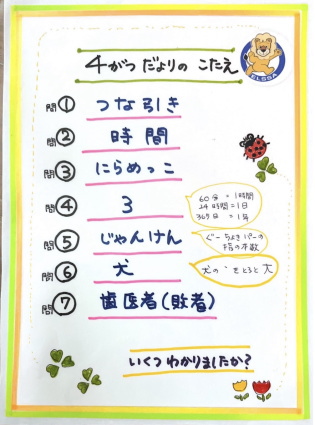 4がつ だよりの こたえ
ELSSA
問① つな引き
問② 時間
問③ にらめっこ
問④ 3
60分 = 1時間
24時間 = 1日
365日 = 1年
問⑤ じゃんけん
ぐーちょきパーの
指の本数
問⑥ 犬
犬の丶をとると大
問⑦ 歯医者(敗者)
いくつわかりましたか?